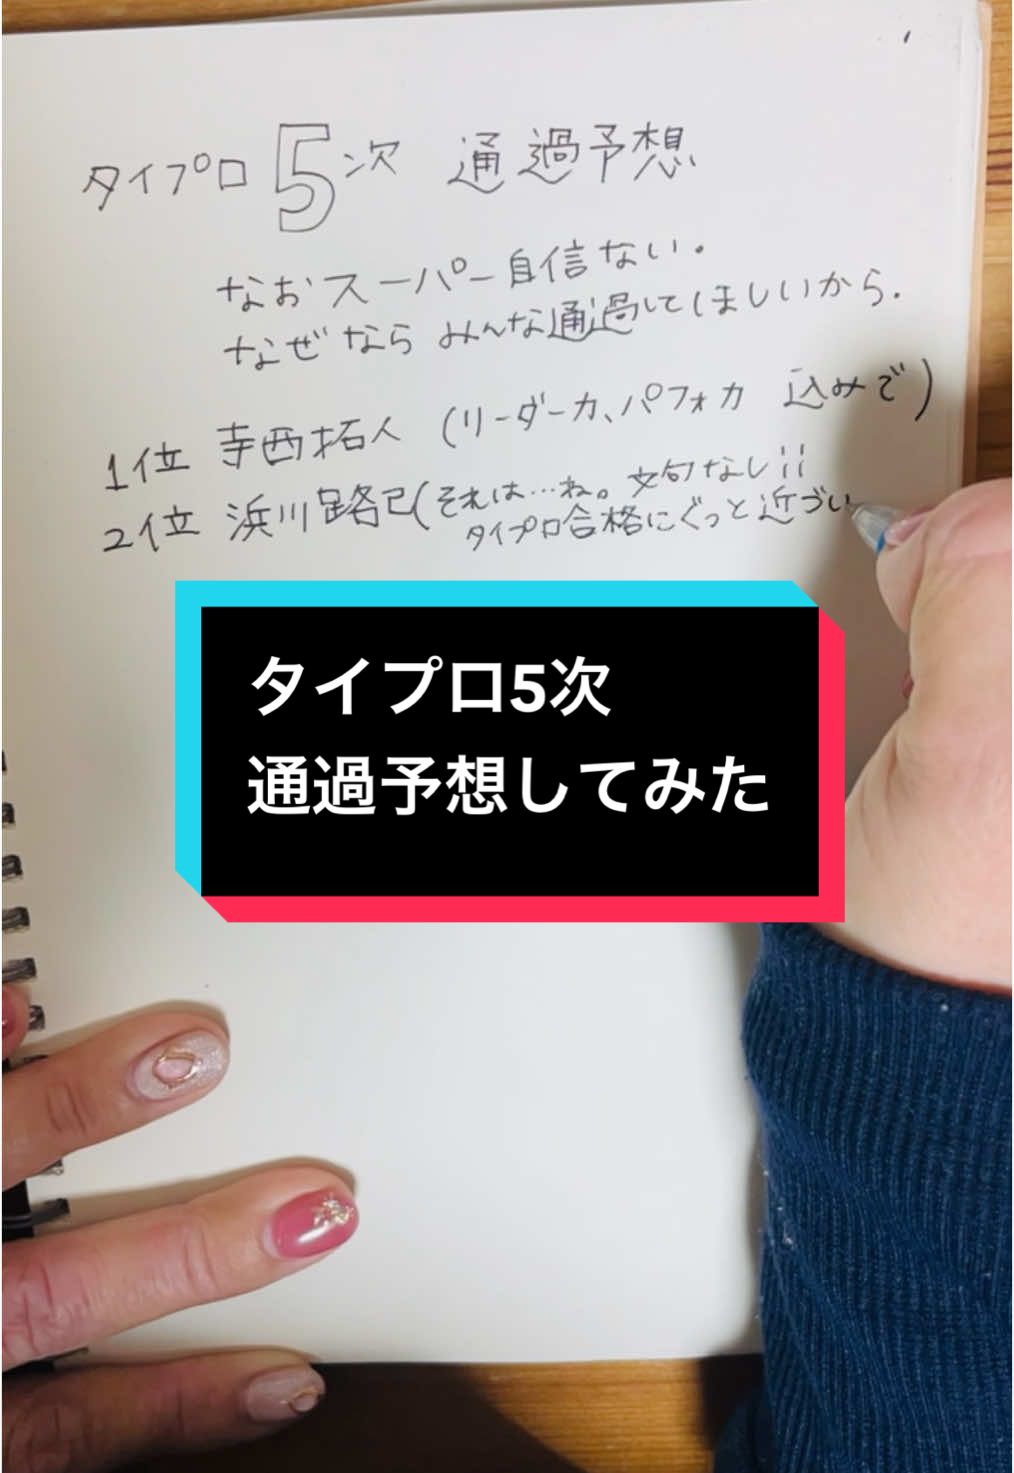 タイプロ 5次 通過予想
なおスーパー自信ない.
なぜなら みんな通過してほしいから.
1位 寺西拓人 (リーダー力、パフォ力 込みで)
2位 浜川路己(それは…ね。文句なし!!
タイプロ合格にぐっと近づい
タイプロ5次
通過予想してみた